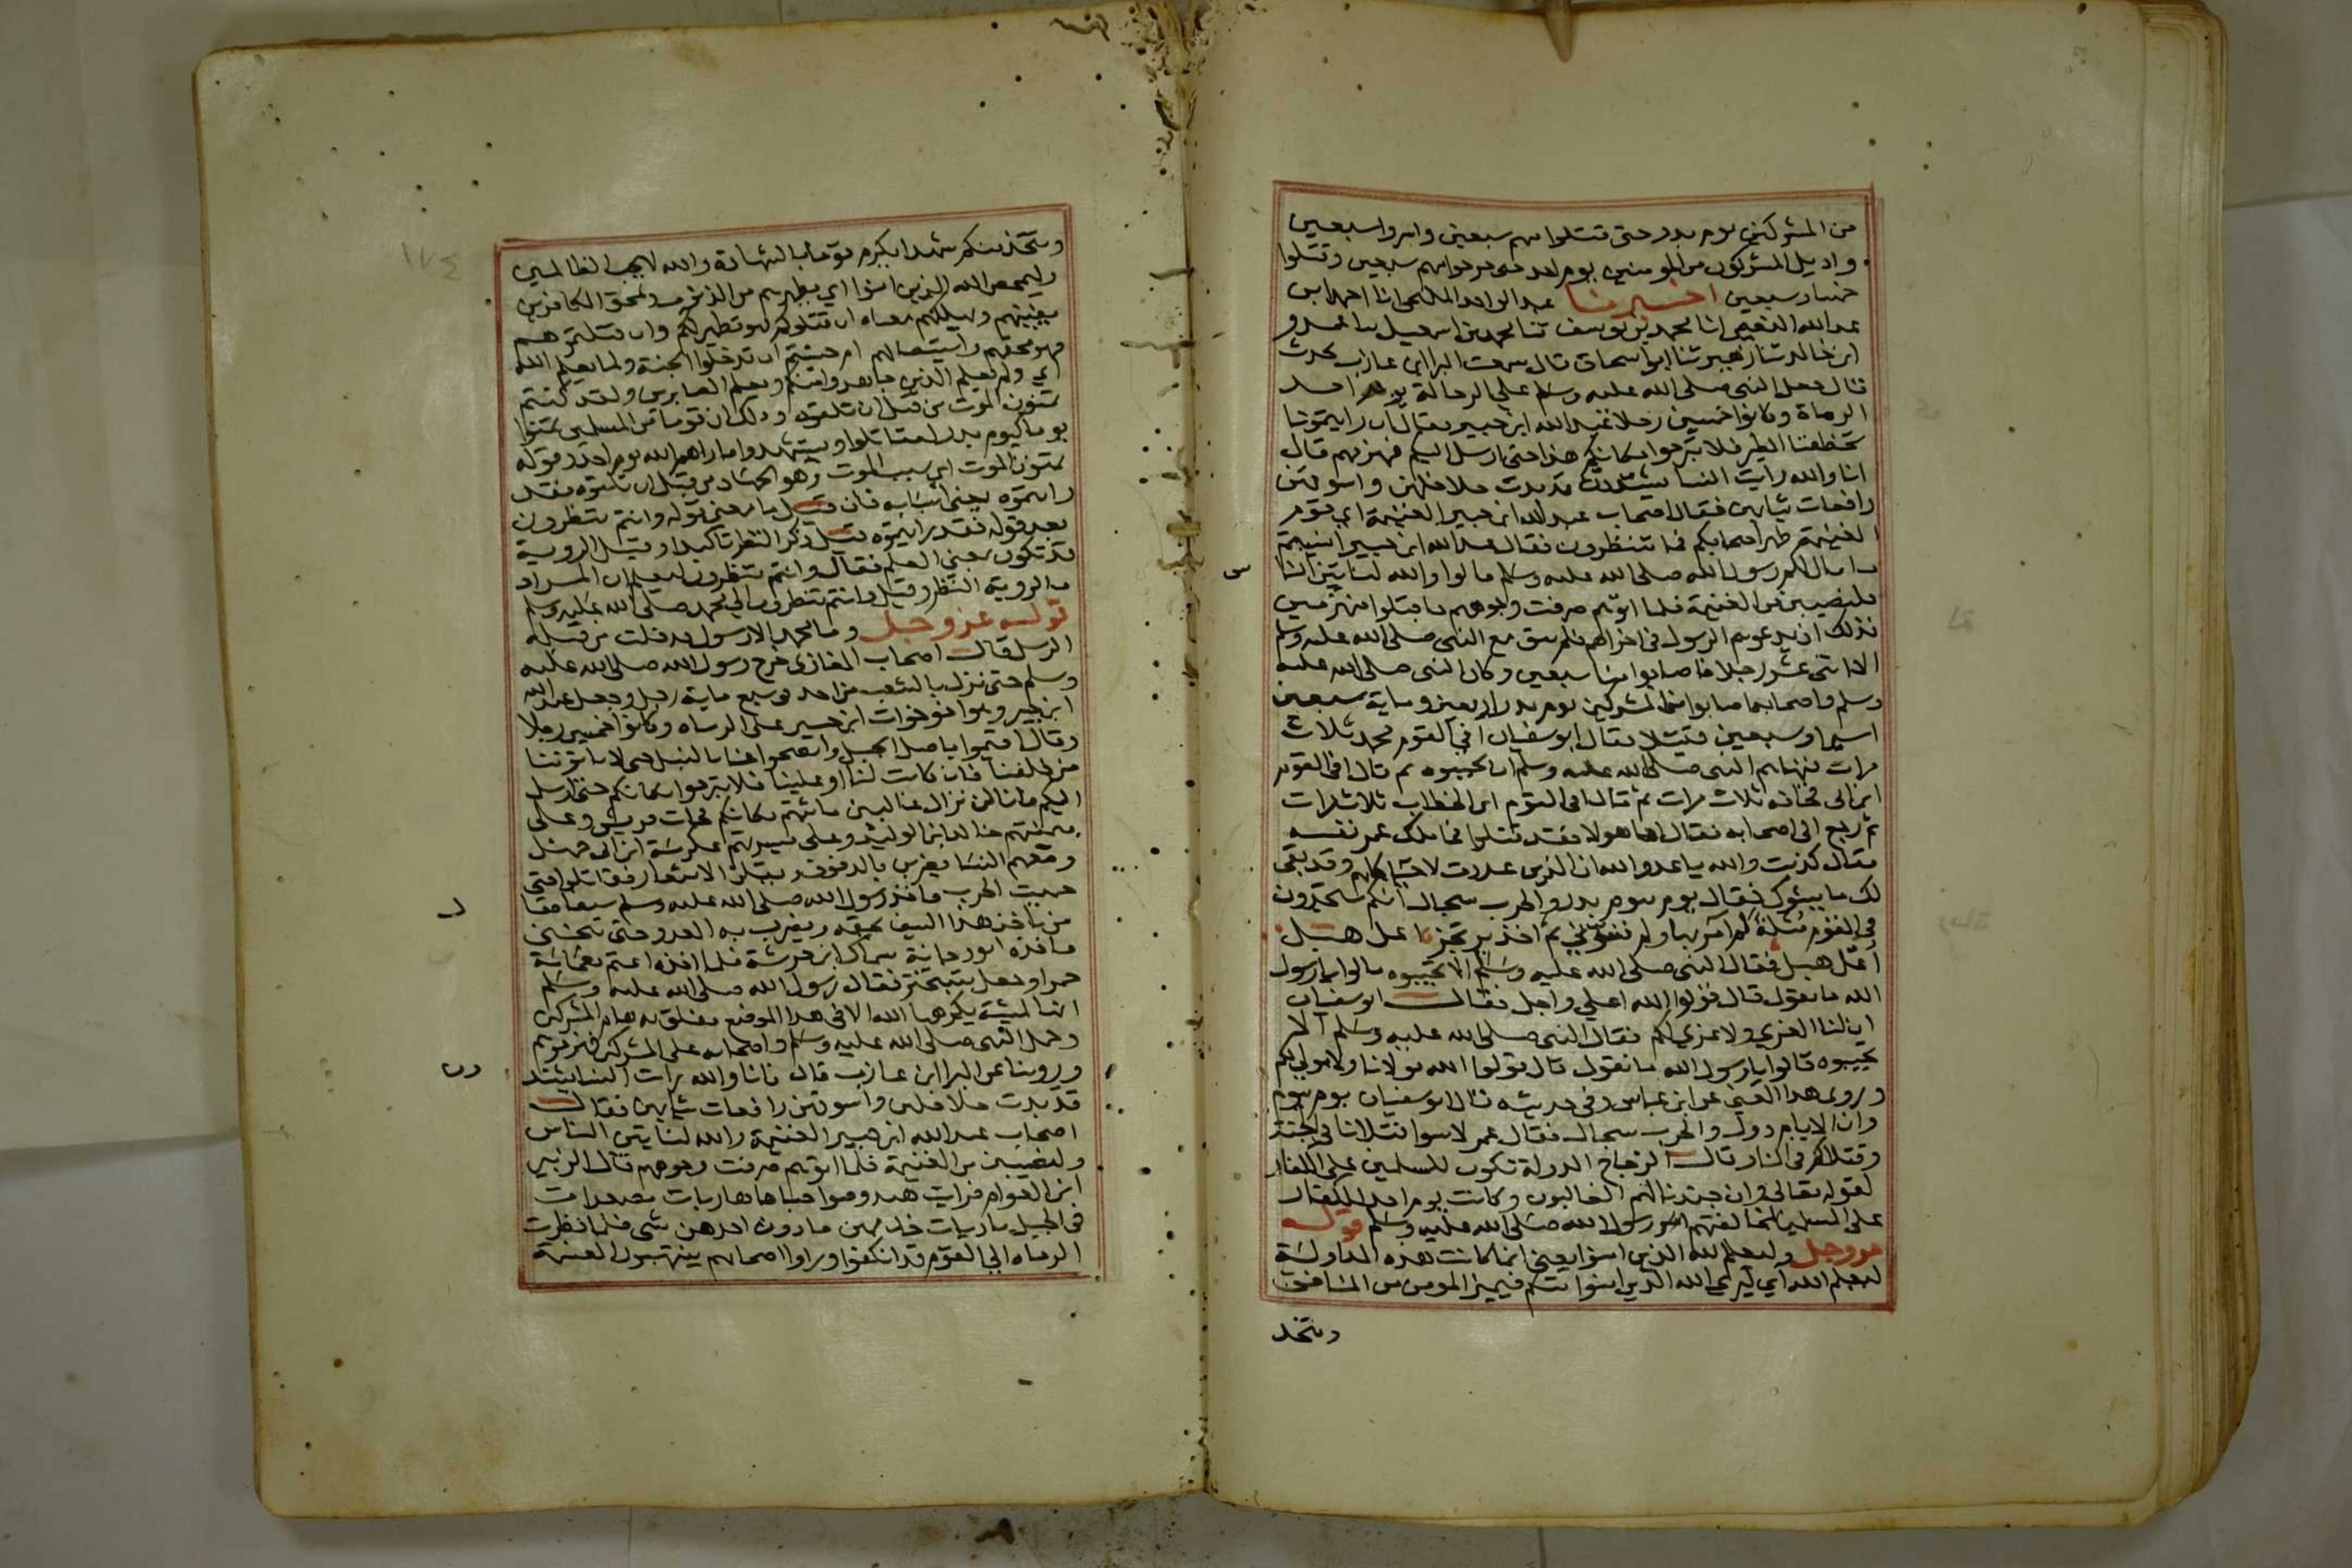 من المشركين يوم بدر حتى قتلوا منهم سبعين واسروا سبعين
واديل المشركون من المومنين يوم احد حتى جرحوا منهم سبعين وقتلوا
خمسا وسبعين اخبرنا عبد الواحد المليحي انا احمد بن
عبد الله النعيمي انا محمد بن يوسف ثنا محمد بن اسمعيل ثنا عمرو
ابن خالد ثنا زهير ثنا ابو اسحاق قال سمعت البرا ابن عازب يحدث
قال جعل النبي صلى الله عليه وسلم على الرجالة يوم احد
الرماة وكانوا خمسين رجلا عبد الله ابن جبير فقال ان رايتمونا
تخطفنا الطير فلا تبرحوا مكانكم هذا حتى ارسل اليكم فهزمهم قال
انا والله رايت النسا يشتددن قد بدت خلاخلهن واسوقهن
رافعات ثيابهن فقال اصحاب عبد الله ابن جبير الغنيمة اي قوم
الغنيمة ظهر اصحابكم فما تنظرون فقال عبد الله ابن جبير انسيتم
ما قال لكم رسول الله صلى الله عليه وسلم قالوا والله لناتين الناس
فلنصيبن من الغنيمة فلما اتوهم صرفت وجوههم فاقبلوا منهزمين
فذلك اذ يدعوهم الرسول في اخراهم فلم يبق مع النبي صلى الله عليه وسلم
الا اثنى عشر رجلا فاصابوا منا سبعين وكان النبي صلى الله عليه
وسلم واصحابه اصابوا من المشركين يوم بدر اربعين وماية سبعين
اسيرا وسبعين قتيلا فقال ابو سفيان افي القوم محمد ثلاث
مرات فنهاهم النبي صلى الله عليه وسلم ان يجيبوه ثم قال افي القوم
ابن ابي قحافه ثلاث مرات ثم قال افي القوم ابن الخطاب ثلاث مرات
ثم رجع الى اصحابه فقال اما هولا فقد قتلوا فما ملك عمر نفسه
فقال كذبت والله يا عدو الله ان الذين عددت لاحيا كلهم وقد بقى
لك ما يسوك فقال يوم بيوم بدر والحرب سجال انكم ستجدون
في القوم مثلة لم آمر بها ولم تسؤني ثم اخذ يرتجز اعل هبل
أعل هبل فقال النبي صلى الله عليه وسلم الا تجيبوه قالوا يا رسول
الله ما نقول قال قولوا الله اعلي واجل فقال ابو سفيان
ان لنا العزي ولا عزي لكم فقال النبي صلى الله عليه وسلم الا
تجيبوه قالوا يا رسول الله ما نقول قال قولوا الله مولانا ولا مولي لكم
وروي هذا المعنى عن ابن عباس وفي حديثه قال ابو سفيان يوم بيوم
وان الايام دول والحرب سجال فقال عمر لا سوا قتلانا في الجنة
وقتلاكم في النار قال الزجاج الدولة تكون للمسلمين على الكفار
لقوله تعالى وان جندنا لهم الغالبون وكانت يوم احد للكفار
على المسلمين لمخالفتهم امر رسول الله صلى الله عليه وسلم قوله
عز وجل وليعلم الله الذين امنوا يعني انما كانت هذه المداولة
ليعلم الله اي ليري الله الذين امنوا منكم فيميز المومن من المنافق
ويتخذ
١٧٤
ويتخذ منكم شهدا يكرم قوما بالشهادة والله لا يحب الظالمين
وليمحص الله الذين امنوا اي يطهرهم من الذنوب ويمحق الكافرين
يفنيهم ويهلكهم معناه ان قتلوكم فهو تطهير لكم وان قتلتموهم
فهو محقهم واستيصالهم ام حسبتم ان تدخلوا الجنة ولما يعلم الله
اي ولم يعلم الذين جاهدوا منكم ويعلم الصابرين ولقد كنتم
تمنون الموت من قبل ان تلقوه وذلك ان قوما من المسلمين تمنوا
يوما كيوم بدر ليقاتلوا ويستشهدوا فاراهم الله يوم احد وقوله
تمنون الموت اي سبب الموت وهو الجهاد من قبل ان تلقوه فقد
رايتموه يعني اسبابه فان قيل ما معنى قوله وانتم تنظرون
بعد قوله فقد رايتموه قيل ذكر النظر تاكيدا وقيل الروية
قد تكون بمعنى العلم فقال وانتم تنظرون ليعلم ان المراد
بالروية النظر وقيل وانتم تنظرون الي محمد صلى الله عليه وسلم
قوله عز وجل وما محمد الا رسول قد خلت من قبله
الرسل قال اصحاب المغازي خرج رسول الله صلى الله عليه
وسلم حتى نزل بالشعب من احد في سبع ماية رجل وجعل عبد الله
ابن جبير وهو اخو خوات ابن جبير على الرماه وكانوا خمسين رجلا
وقال اقيموا باصل الجبل وانضحوا عنا بالنبل حتى لا ياتونا
من خلفنا فان كانت لنا او علينا فلا تبرحوا مكانكم حتى ارسل
اليكم فانا لن نزال غالبين ما ثبتم مكانكم فجات قريش وعلى
ميمنتهم خالد ابن الوليد وعلى ميسرتهم عكرمة ابن ابي جهل
ومعهم النسا يضربن بالدفوف ويقلن الاشعار فقاتلوا حتى
حميت الحرب فاخذ رسول الله صلى الله عليه وسلم سيفا فقال
من ياخذ هذا السيف بحقه ويضرب به العدو حتى يثخن
فاخذه ابو دجانة سماك ابن خرشة فلما اخذه اعتم بعمامة
حمرا وجعل يتبختر فقال رسول الله صلى الله عليه وسلم
انها لمشية يكرهها الله الا في هذا الموضع ففلق به هام المشركين
وحمل النبي صلى الله عليه وسلم واصحابه على المشركين فهزموهم
وروينا عن البرا ابن عازب قال فانا والله رايت النسا يشتددن
قد بدت خلاخلهن واسوقهن رافعات ثيابهن فقال
اصحاب عبد الله ابن جبير الغنيمة والله لناتين الناس
ولنصيبن من الغنيمة فلما اتوهم صرفت وجوههم قال الزبير
ابن العوام فرايت هند وصواحباتها هاربات مصعدات
في الجبل باديات خدامهن ما دون اخذهن شي فلما نظرت
الرماه الى القوم قد انكشفوا وراوا اصحابهم ينتهبون الغنيمة